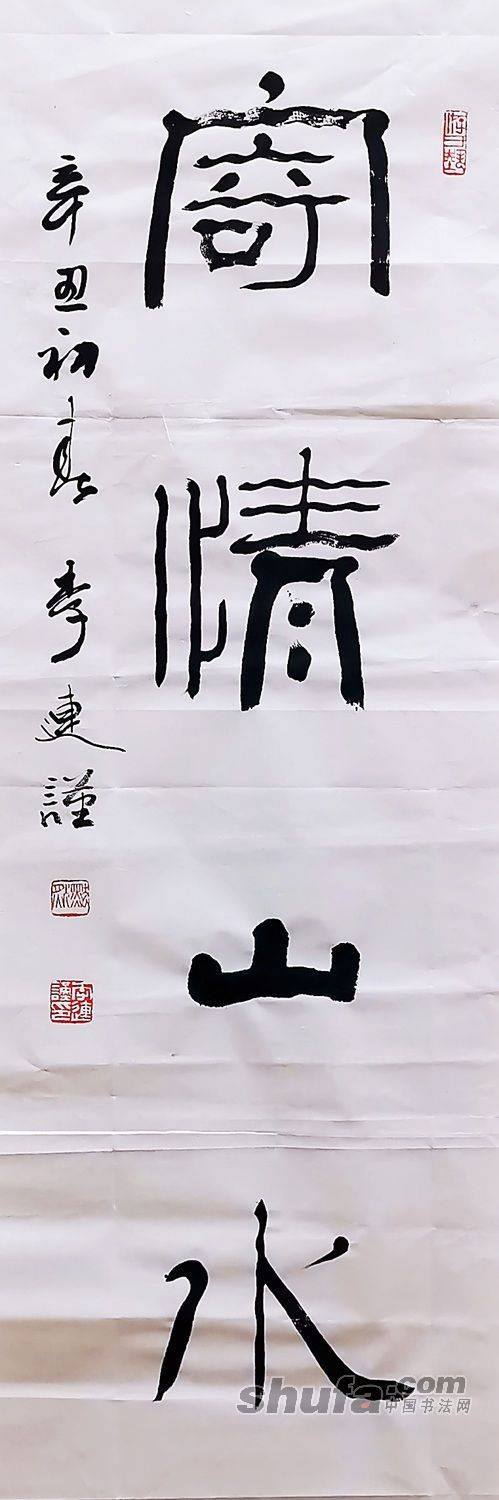 寄情山水
辛丑初春 李连謹
李連
謹印
shufa.com
中国书法网